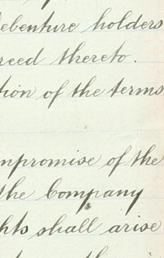 ebenture holders
reed thereto.
tion of the terms
mpromise of the
the Company
hts shall arise